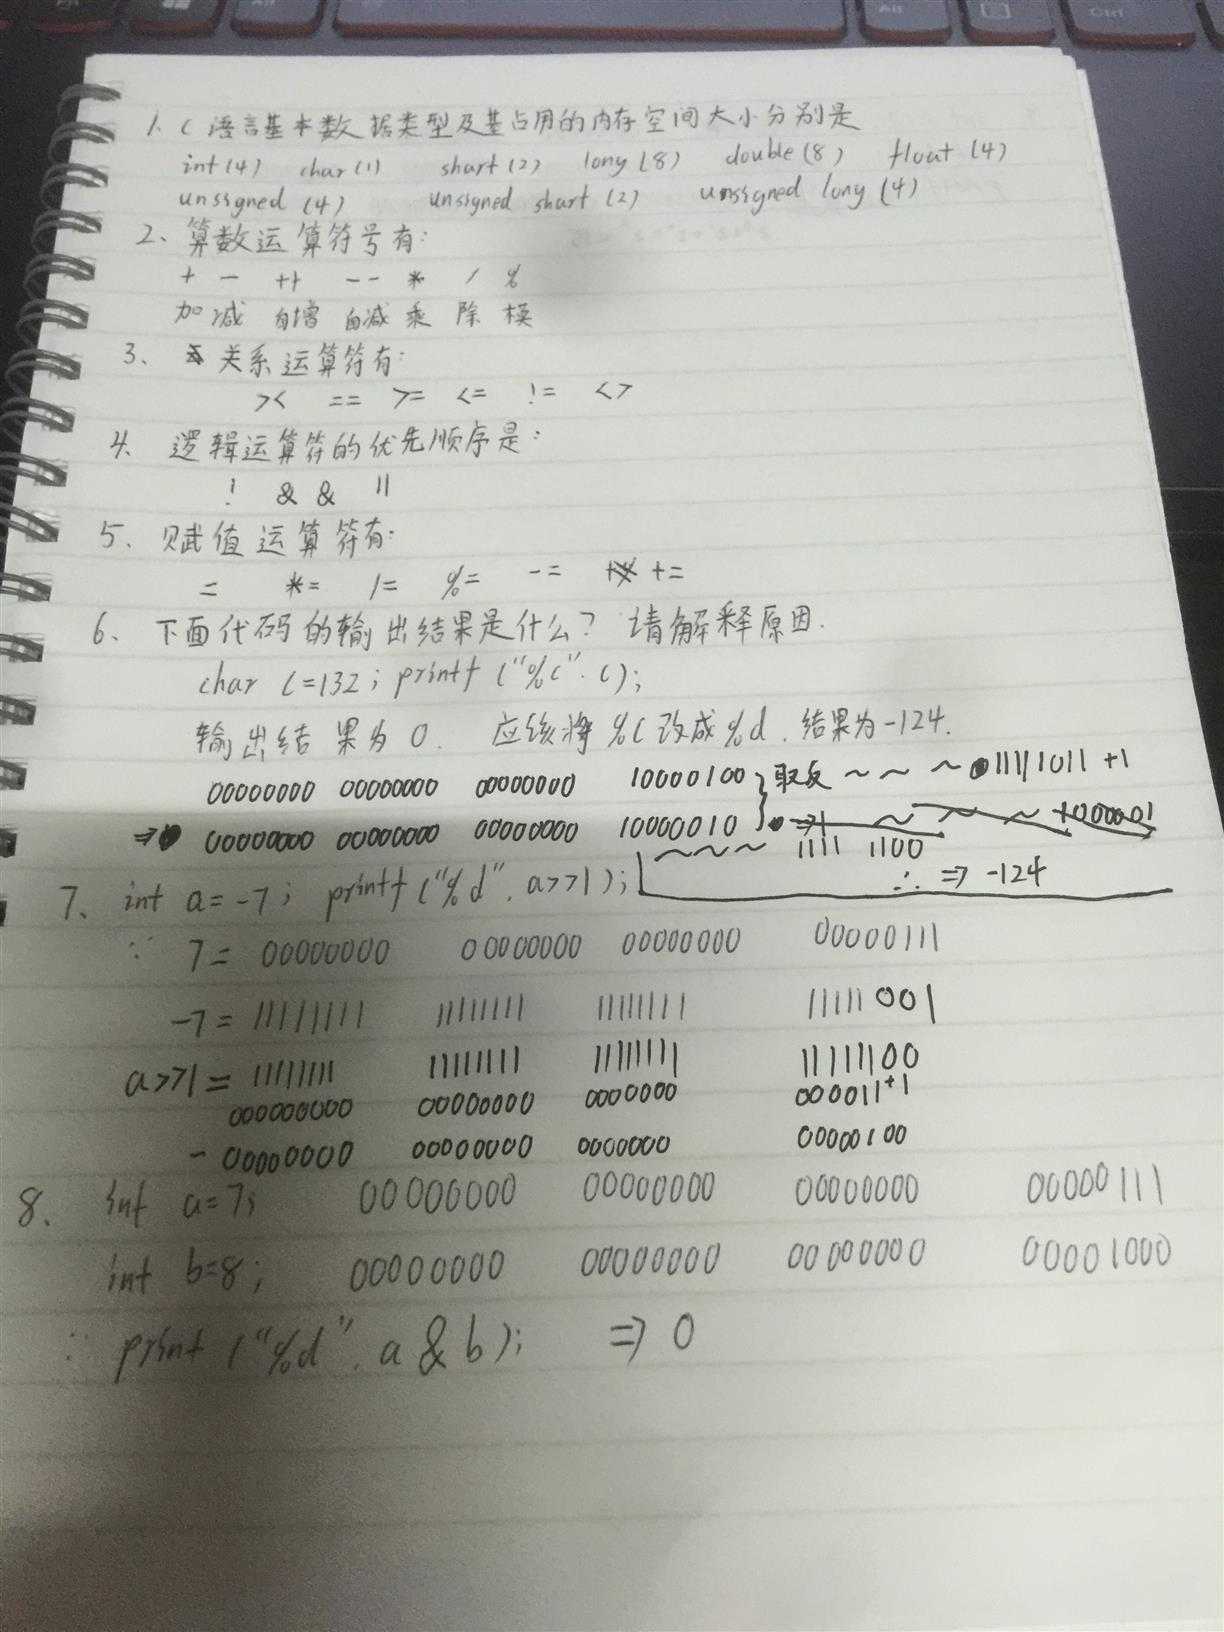 1、C 语言基本数据类型及基占用的内存空间大小分别是
int (4) char (1) shart (2) lony (8) double (8) float (4)
unssgned (4) unssgned shart (2) unssgned lony (4)
2、算数运算符号有:
+ - ++ -- * / %
加 减 自增 自减 乘 除 模
3、关系运算符有:
>< == >= <= != <>
4、逻辑运算符的优先顺序是:
! && ||
5、赋值运算符有:
= *= /= %= -= +=
6、下面代码的输出结果是什么? 请解释原因.
char c=132; printf ("%c". c);
输出结果为 0. 应该将 %c 改成 %d. 结果为 -124.
00000000 00000000 00000000 10000100 取反 ~ ~ ~ 11111011 +1
=> 00000000 00000000 00000000 10000010
~~~ 1111 1100
∴ => -124
7、int a=-7; printf ("%d". a>>1);
∵ 7= 00000000 00000000 00000000 00000111
-7= 11111111 11111111 11111111 11111001
a>>1= 11111111 11111111 11111111 11111100
000000000 00000000 0000000 000011+1
- 00000000 00000000 0000000 00000100
8、int a=7; 00000000 00000000 00000000 00000111
int b=8; 00000000 00000000 00000000 00001000
∵ print ("%d". a & b); => 0